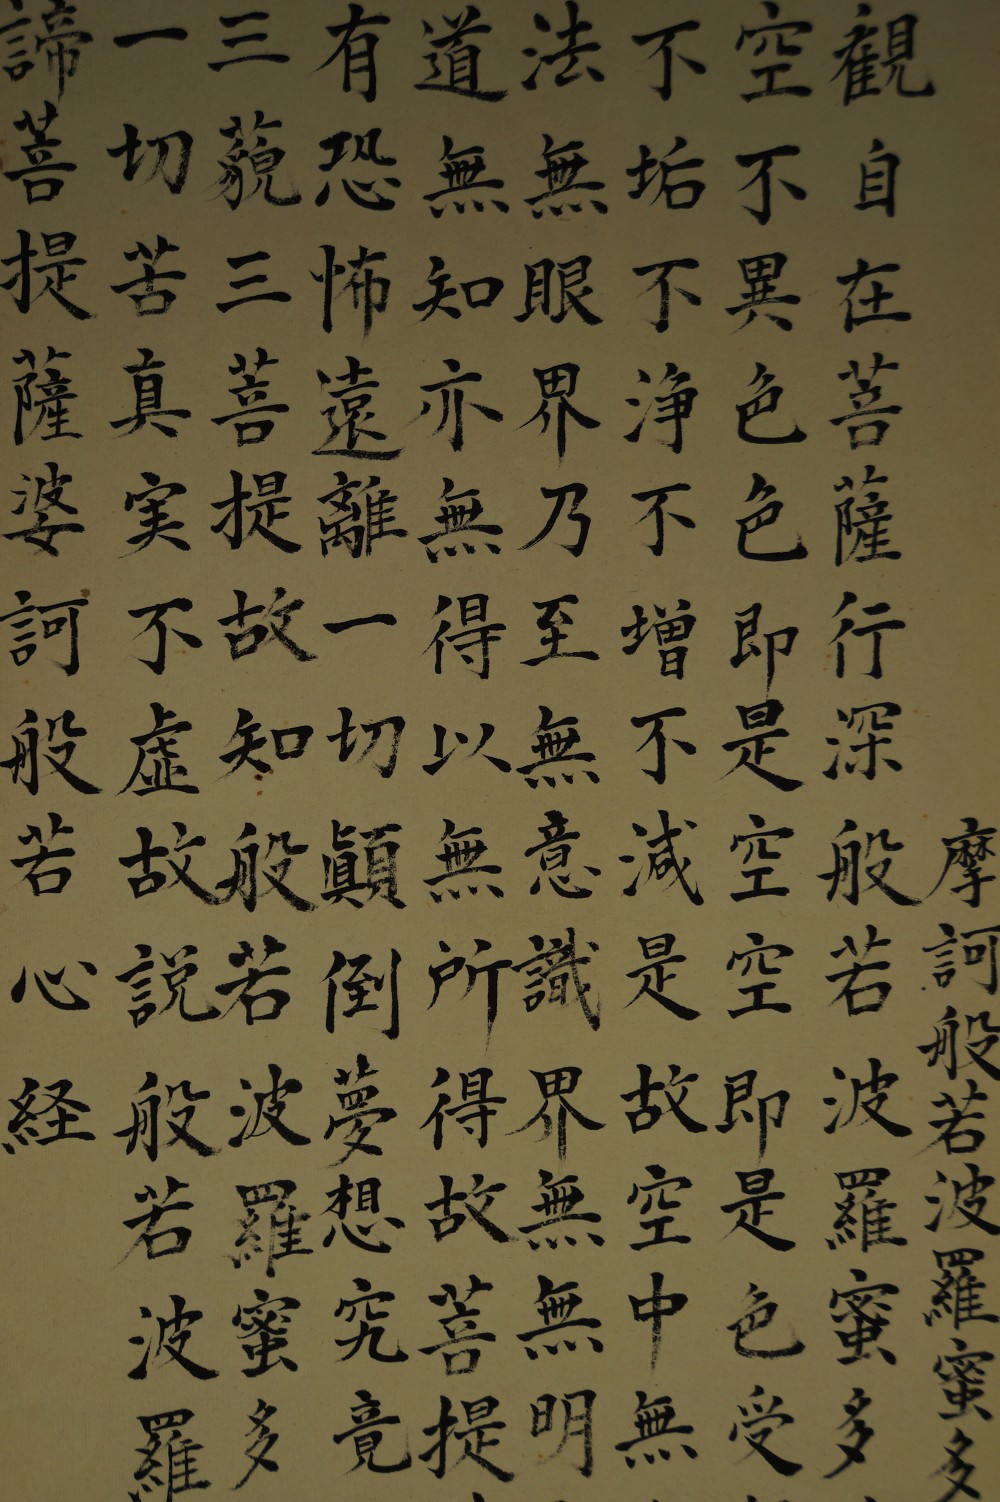 摩訶般若波羅蜜多
觀自在菩薩行深般若波羅蜜多
空不異色色即是空空即是色受
不垢不浄不増不減是故空中無
法無眼界乃至無意識界無無明
道無知亦無得以無所得故菩提
有恐怖遠離一切顛倒夢想究竟
三藐三菩提故知般若波羅蜜多
一切苦真実不虚故説般若波羅
諦菩提薩婆訶般若心経